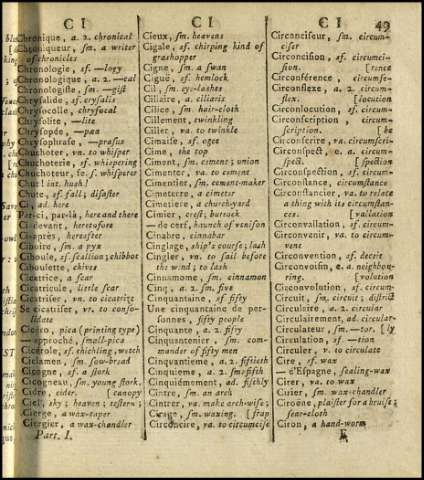 CI
CI
CI
49
Chronique, a. 2. chronical
Chroniqueur, sm. a writer
of chronicles
Chronologie, sf. —logy
Chronologique, a. 2. —cal
Chronologiste, sm. —gist
Chrysalide, sf. crysalis
Chrysocolle, chrysocal
Chrysolite, —lite
Chrysopée, —paa
Chrysophrase, —prasus
Chuchoter, vn. to whisper
Chuchoterie, sf. whispering
Chuchoteur, se. s. whisperer
Chut! int. hush!
Chute, sf. fall; disaster
Ci, ad. here
Par-ci, par-là, here and there
Ci-devant, heretofore
Ci-après, hereafter
Ciboire, sm. a pyx
Ciboule, sf. scallion; chibbot
Ciboulette, chives
Cicatrice, a scar
Cicatricule, little scar
Cicatriser, vn. to cicatrize
Se cicatriser, vr. to conso-
lidate
Cicero, pica (printing type)
— approché, small-pica
Cicérole, sf. chichling, vetch
Ciclamen, sm. sow-bread
Cicogne, sf. a stork
Cicogneau, sm. young stork.
Cidre, cider. [canopy
Ciel, sky; heaven; tester-;
Cierge, a wax-taper
Ciergier, a wax-chandler
Part. I.
Cieux, sm. heavens
Cigale, sf. chirping kind of
grasshopper
Cigne, sm. a swan
Ciguë, sf. hemlock
Cil, sm. eye-lashes
Ciliaire, a. ciliaris
Cilice, sm. hair-cloth
Cillement, twinkling
Ciller, va. to twinkle
Cimaise, sf. ogee
Cime, the top
Ciment, sm. ciment; union
Cimenter, va. to cement
Cimentier, sm. cement-maker
Cimeterre, a cimeter
Cimetiere, a church-yard
Cimier, crest; buttock
— de cerf, haunch of venison
Cinabre, cinnabar
Cinglage, ship's course; lash
Cingler, vn. to sail before
the wind; to lash
Cinnamome, sm. cinnamon
Cinq, a. 2. sm. five
Cinquantaine, sf. fifty
Une cinquantaine de per-
sonnes, fifty people
Cinquante, a. 2. fifty
Cinquantenier, sm. com-
mander of fifty men
Cinquantieme, a. 2. fiftieth
Cinquieme, a. 2. sm. fifth
Cinquiémement, ad. fifthly
Cintre, sm. an arch
Cintrer, va. make arch-wise;
Cirage, sm. waxing. [frap
Circoncire, va. to circumcise
Circonciseur, sm. circum-
ciser
Circoncision, sf. circumci-
sion. [rence
Circonférence, circumfe-
Circonflexe, a. 2. circum-
flex. [locution
Circonlocution, sf. circum-
Circonscription, circum-
scription. [be
Conscrire, va. circumscri-
Circonspect, e. a. circum-
spect. [spection
Circonspection, sf. circum-
Circonstance, circumstance
Circonstancier, va. to relate
a thing with its circumstan-
ces. [vallation
Circonvallation, sf. circum-
Circonvenir, va. to circum-
vent
Circonvention, sf. deceit
Circonvoisin, e. a. neighbou-
ring. [volution
Circonvolution, sf. circum-
Circuit, sm. circuit; district
Circulaire, a. 2. circular
Circulairement, ad. circular-
Circulateur, sm. —tor. [ly
Circulation, sf. —tion
Circuler, v. to circulate
Cire, sf. wax
— d'Espagne, sealing-wax
Cirer, va. to wax
Cirier, sm. wax-chandler
Ciroëne, plaister for a bruise;
sear-cloth
Ciron, a hand-worm
E